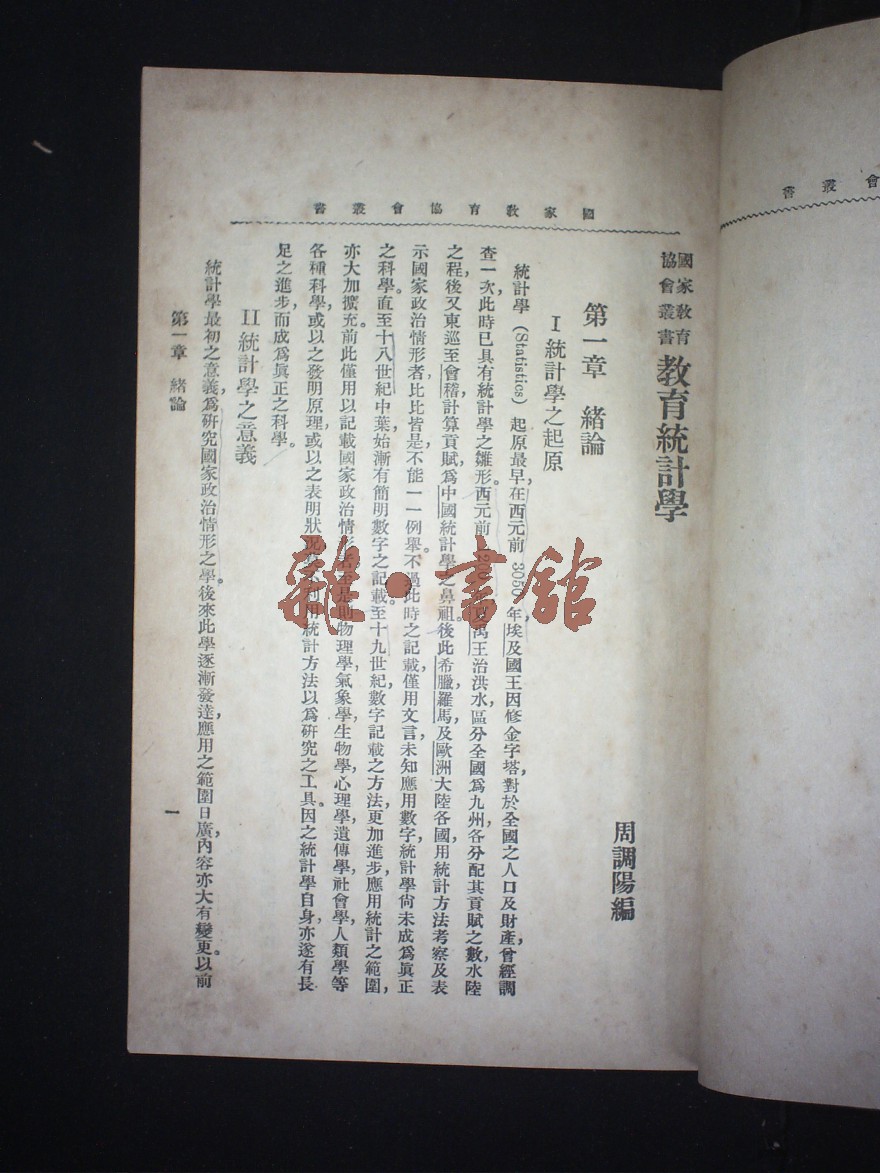 國家教育協會叢書
會叢書
國家教育
協會叢書
教育統計學
周調陽編
第一章 緒論
I 統計學之起原
統計學 (Statistics) 起原最早，在西元前 3050 年，埃及國王因修金字塔，對於全國之人口及財產，曾經調
查一次，此時已具有統計學之雛形。西元前 夏禹王治洪水，區分全國爲九州，各分配其貢賦之數，水陸
之程，後又東巡至會稽，計算貢賦，爲中國統計學之鼻祖。後此希臘，羅馬，及歐洲大陸各國，用統計方法考察及表
示國家政治情形者，比比皆是，不能一一例舉。不過此時之記載，僅用文言，未知應用數字，統計學尙未成爲眞正
之科學。直至十八世紀中葉，始漸有簡明數字之記載。至十九世紀，數字記載之方法，更加進步，應用統計之範圍，
亦大加擴充。前此僅用以記載國家政治情形 物理學，氣象學，生物學，心理學，遺傳學，社會學，人類學等
各種科學，或以之發明原理，或以之表明狀況 利用統計方法以爲研究之工具。因之統計學自身，亦遂有長
足之進步，而成爲眞正之科學。
II 統計學之意義
統計學最初之意義，爲研究國家政治情形之學。後來此學逐漸發達，應用之範圍日廣，內容亦大有變更。以前
第一章 緒論
一
雜·書館